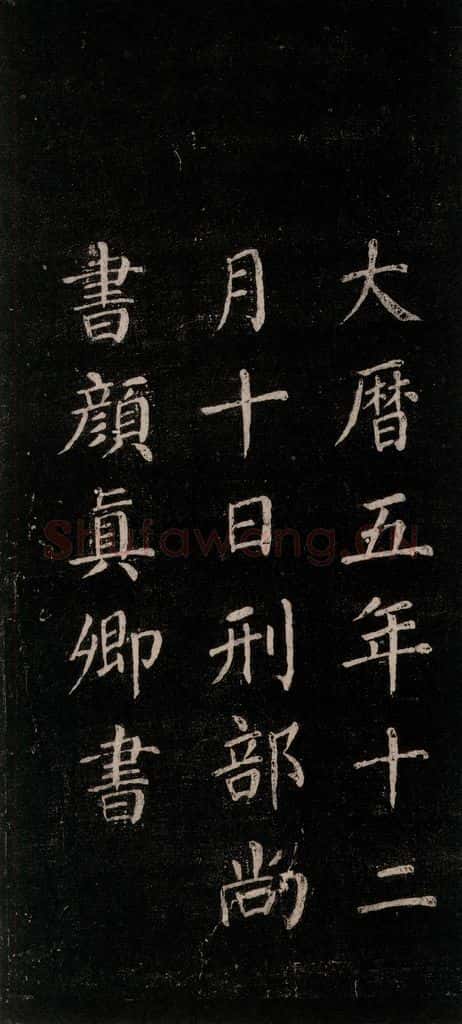 大曆五年十二
月十日刑部尚
書顔眞卿書
Shufawang.cn